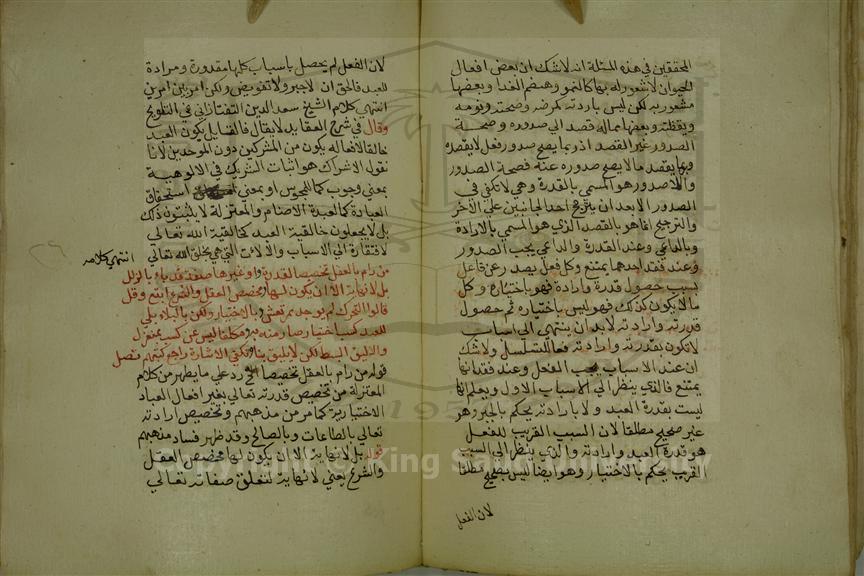 المحققين في هذه المسئلة انه لاشك ان بعض افعال
الحيوان لا شعور له بها كالنمو وهضم الغذا وبعضها
مشعور به لكن ليس بارادته كمرضه وصحته ونومه
ويقظته وبعضها مماله قصد الى صدوره وصحة
الصدور غير القصد اذ ربما يصح صدور فعل لا يقصده
وربما يقصد ما لا يصح صدوره عنه فصحة الصدور
واللاصدور هو المسمى بالقدرة وهي لا تكفي في
الصدور الا بعد ان يترجح احد الجانبين على الاخر
والترجيح انما هو بالقصد الذي هو المسمى بالارادة
وبالداعي وعند القدرة والداعي يجب الصدور
وعند فقد احدهما يمتنع وكل فعل يصدر عن فاعل
بسبب حصول قدرة وارادة فهو باختياره وكل
ما لا يكون كذلك فهو ليس باختياره ثم حصول
قدرته وارادته لا بد ان ينتهى الى اسباب
لا تكون بقدرته وارادته دفعا للتسلسل ولا شك
ان عند الاسباب يجب الفعل وعند فقدانها
يمتنع فالذي ينظر الى الاسباب الاول ويعلم انها
ليست بقدرة العبد ولا بارادته يحكم بالجبر وهو
غير صحيح مطلقا لان السبب القريب للفعل
هو قدرة العبد وارادته والذي ينظر الى السبب
القريب يحكم بالاختيار وهو ايضا ليس بصحيح مطلقا
لان الفعل
لان الفعل لم يحصل باسباب كلها مقدورة ومرادة
للعبد فالحق ان لا جبر ولا تفويض ولكن امر بين امرين
انتهى كلام الشيخ سعد الدين التفتازاني في التلويح
وقال في شرح العقايد لا يقال فالقايل بكون العبد
خالقا لافعاله يكون من المشركين دون الموحدين لانا
نقول الاشراك هو اثبات الشريك في الالوهية
بمعنى وجوب كما للمجوس او بمعنى استحقاق
العبادة كما لعبدة الاصنام والمعتزلة لا يثبتون ذلك
بل لا يجعلون خالقية العبد كخالقية الله تعالى
لافتقاره الى الاسباب والالات التي هي بخلق الله تعالى
انتهى كلامه
من رام بالعقل تخصيصا لقدرة او غيرها صفة
بل لا نهاية الا ان يكون لها مخصص العقل والشرع اتبع وقل
قالوا التحرك لم يوجد بمرتعش بالاختيار ولكن
للعبد كسب اختيار صار منه به مكلفا ليس عن كسب بمنعزل
والذليق البسط لكن لا يليق بنا تكفي الاشارة راجع كتبهم تصل
قوله من رام بالعقل تخصيصا الخ رد على ما يظهر من كلام
المعتزلة من تخصيص قدرته تعالى بغير افعال العباد
الاختيارية كما مر من مذهبهم وتخصيص ارادته
تعالى بالطاعات وبالصالح وقد ظهر فساد مذهبهم
قوله بل لا نهاية الا ان يكون لها مخصص العقل
والشرع يعني لا نهاية لتعلق صفاته تعالى